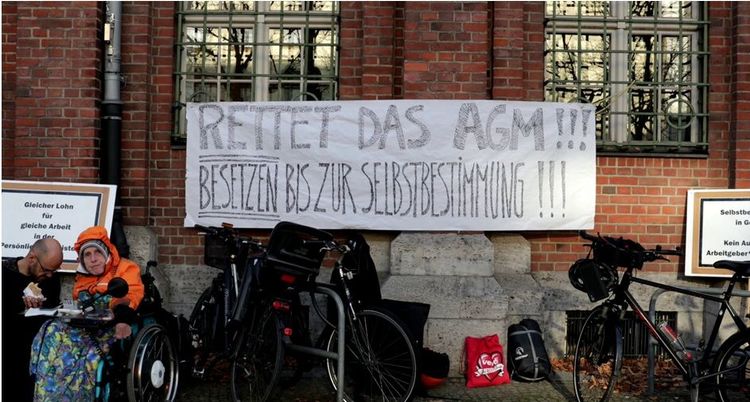 RETTET DAS AGM!!!
BESETZEN BIS ZUR SELBSTBESTIMMUNG !!!
Gleicher Lohn
für
gleiche Arbeit
in der
Selbstbe
in Ge
Kein Au
Arbeitgeber*